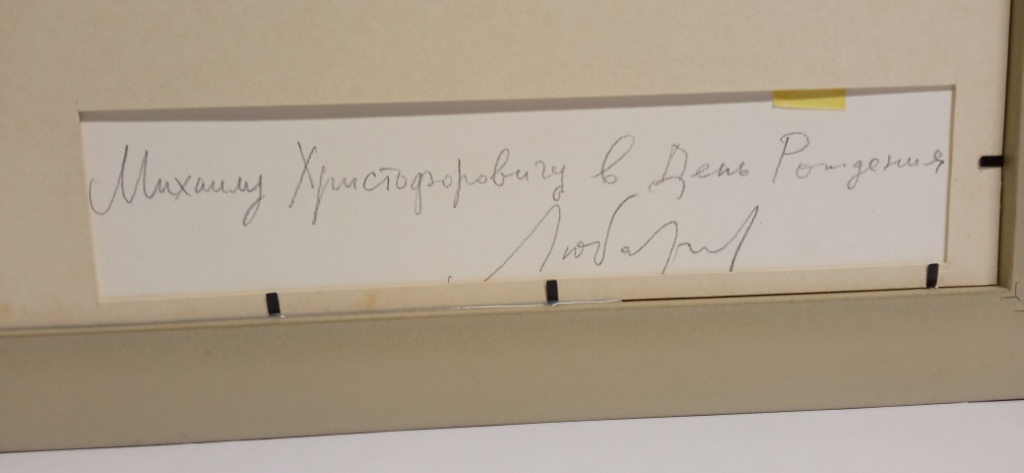 Михаилу Христофоровичу в День Рождения